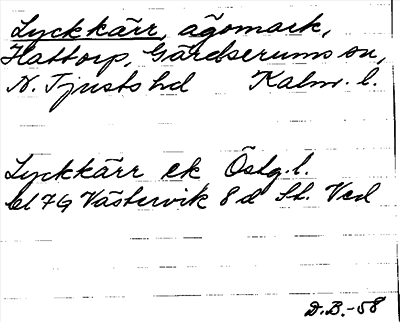 Lyckkärr, ägomark,
Hattorp, Gärdserums sn,
N. Tjusts hd Kalm. l.
Lyckkärr ek Östg. l.
bl 7G Västervik 8 d St. Ved
D.B.-58